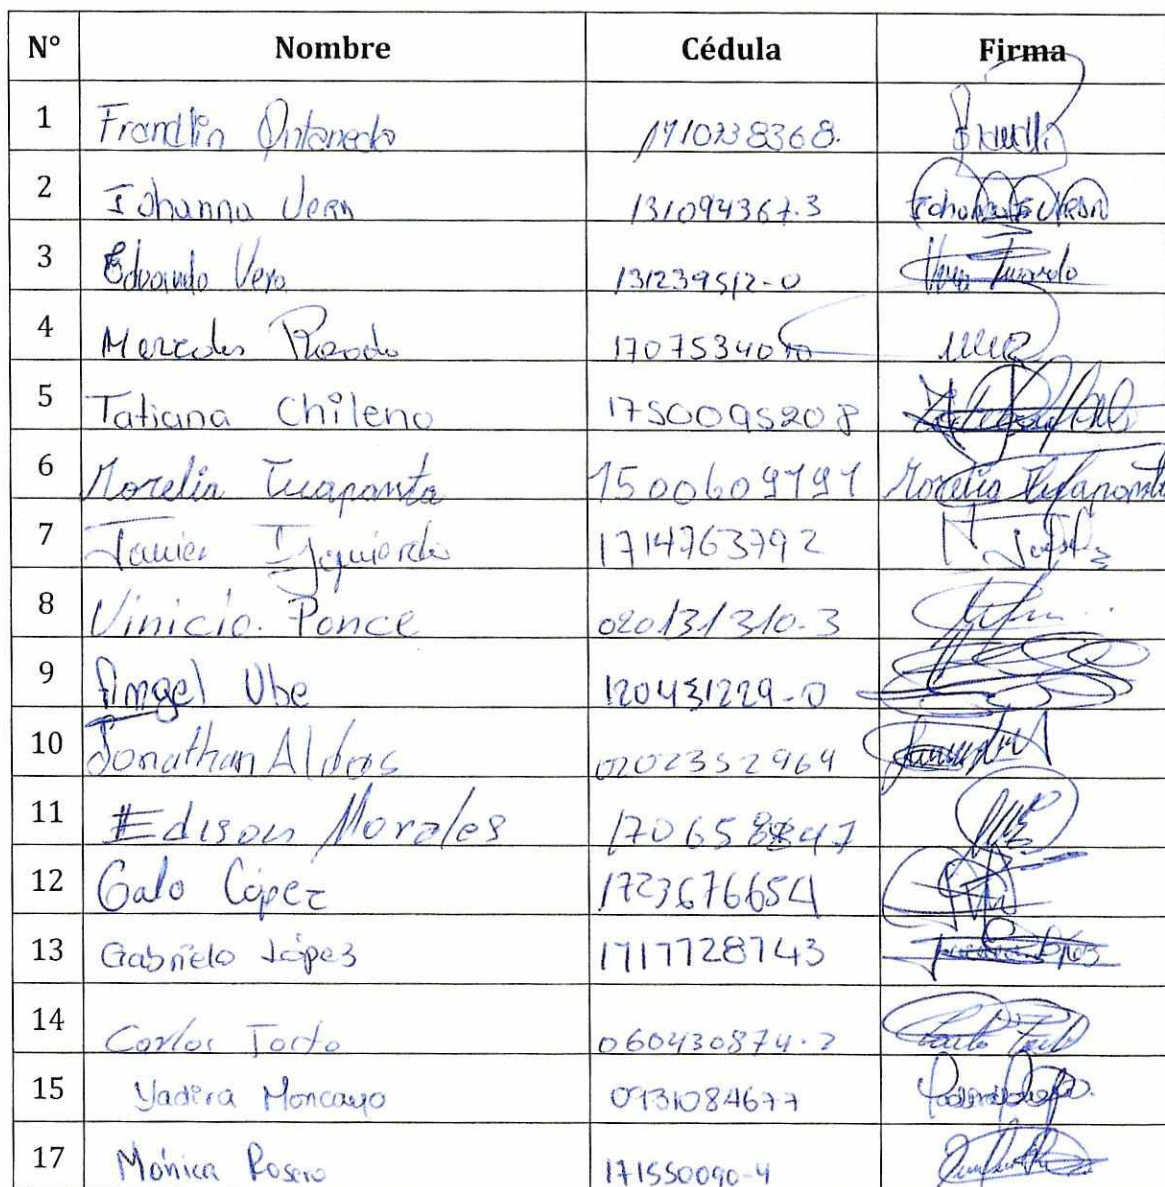 N° Nombre Cédula Firma
1 Franklin Quitanedo 1710238368.
2 Johanna Vera 131094367-3 Johanna Vera
3 Eduardo Vera 131239512-0 Vera Eduardo
4 Mercedes 17075340
5 Tatiana Chileno 1750095208
6 Morelia Tucaponta 1500609797 Morelia
7 Javier Izquierdo 1714763792
8 Vinicio. Ponce 020131310-3
9 Angel Ube 120431229-0
10 Jonathan Aldas 0202352964
11 Edison Morales
12 Galo López 1723676654
13 Gabriela López 1717728743
14 Carlos Torto 060430874-2
15 Yadira Moncayo 0931084677
17 Mónica Rosero 171550090-4